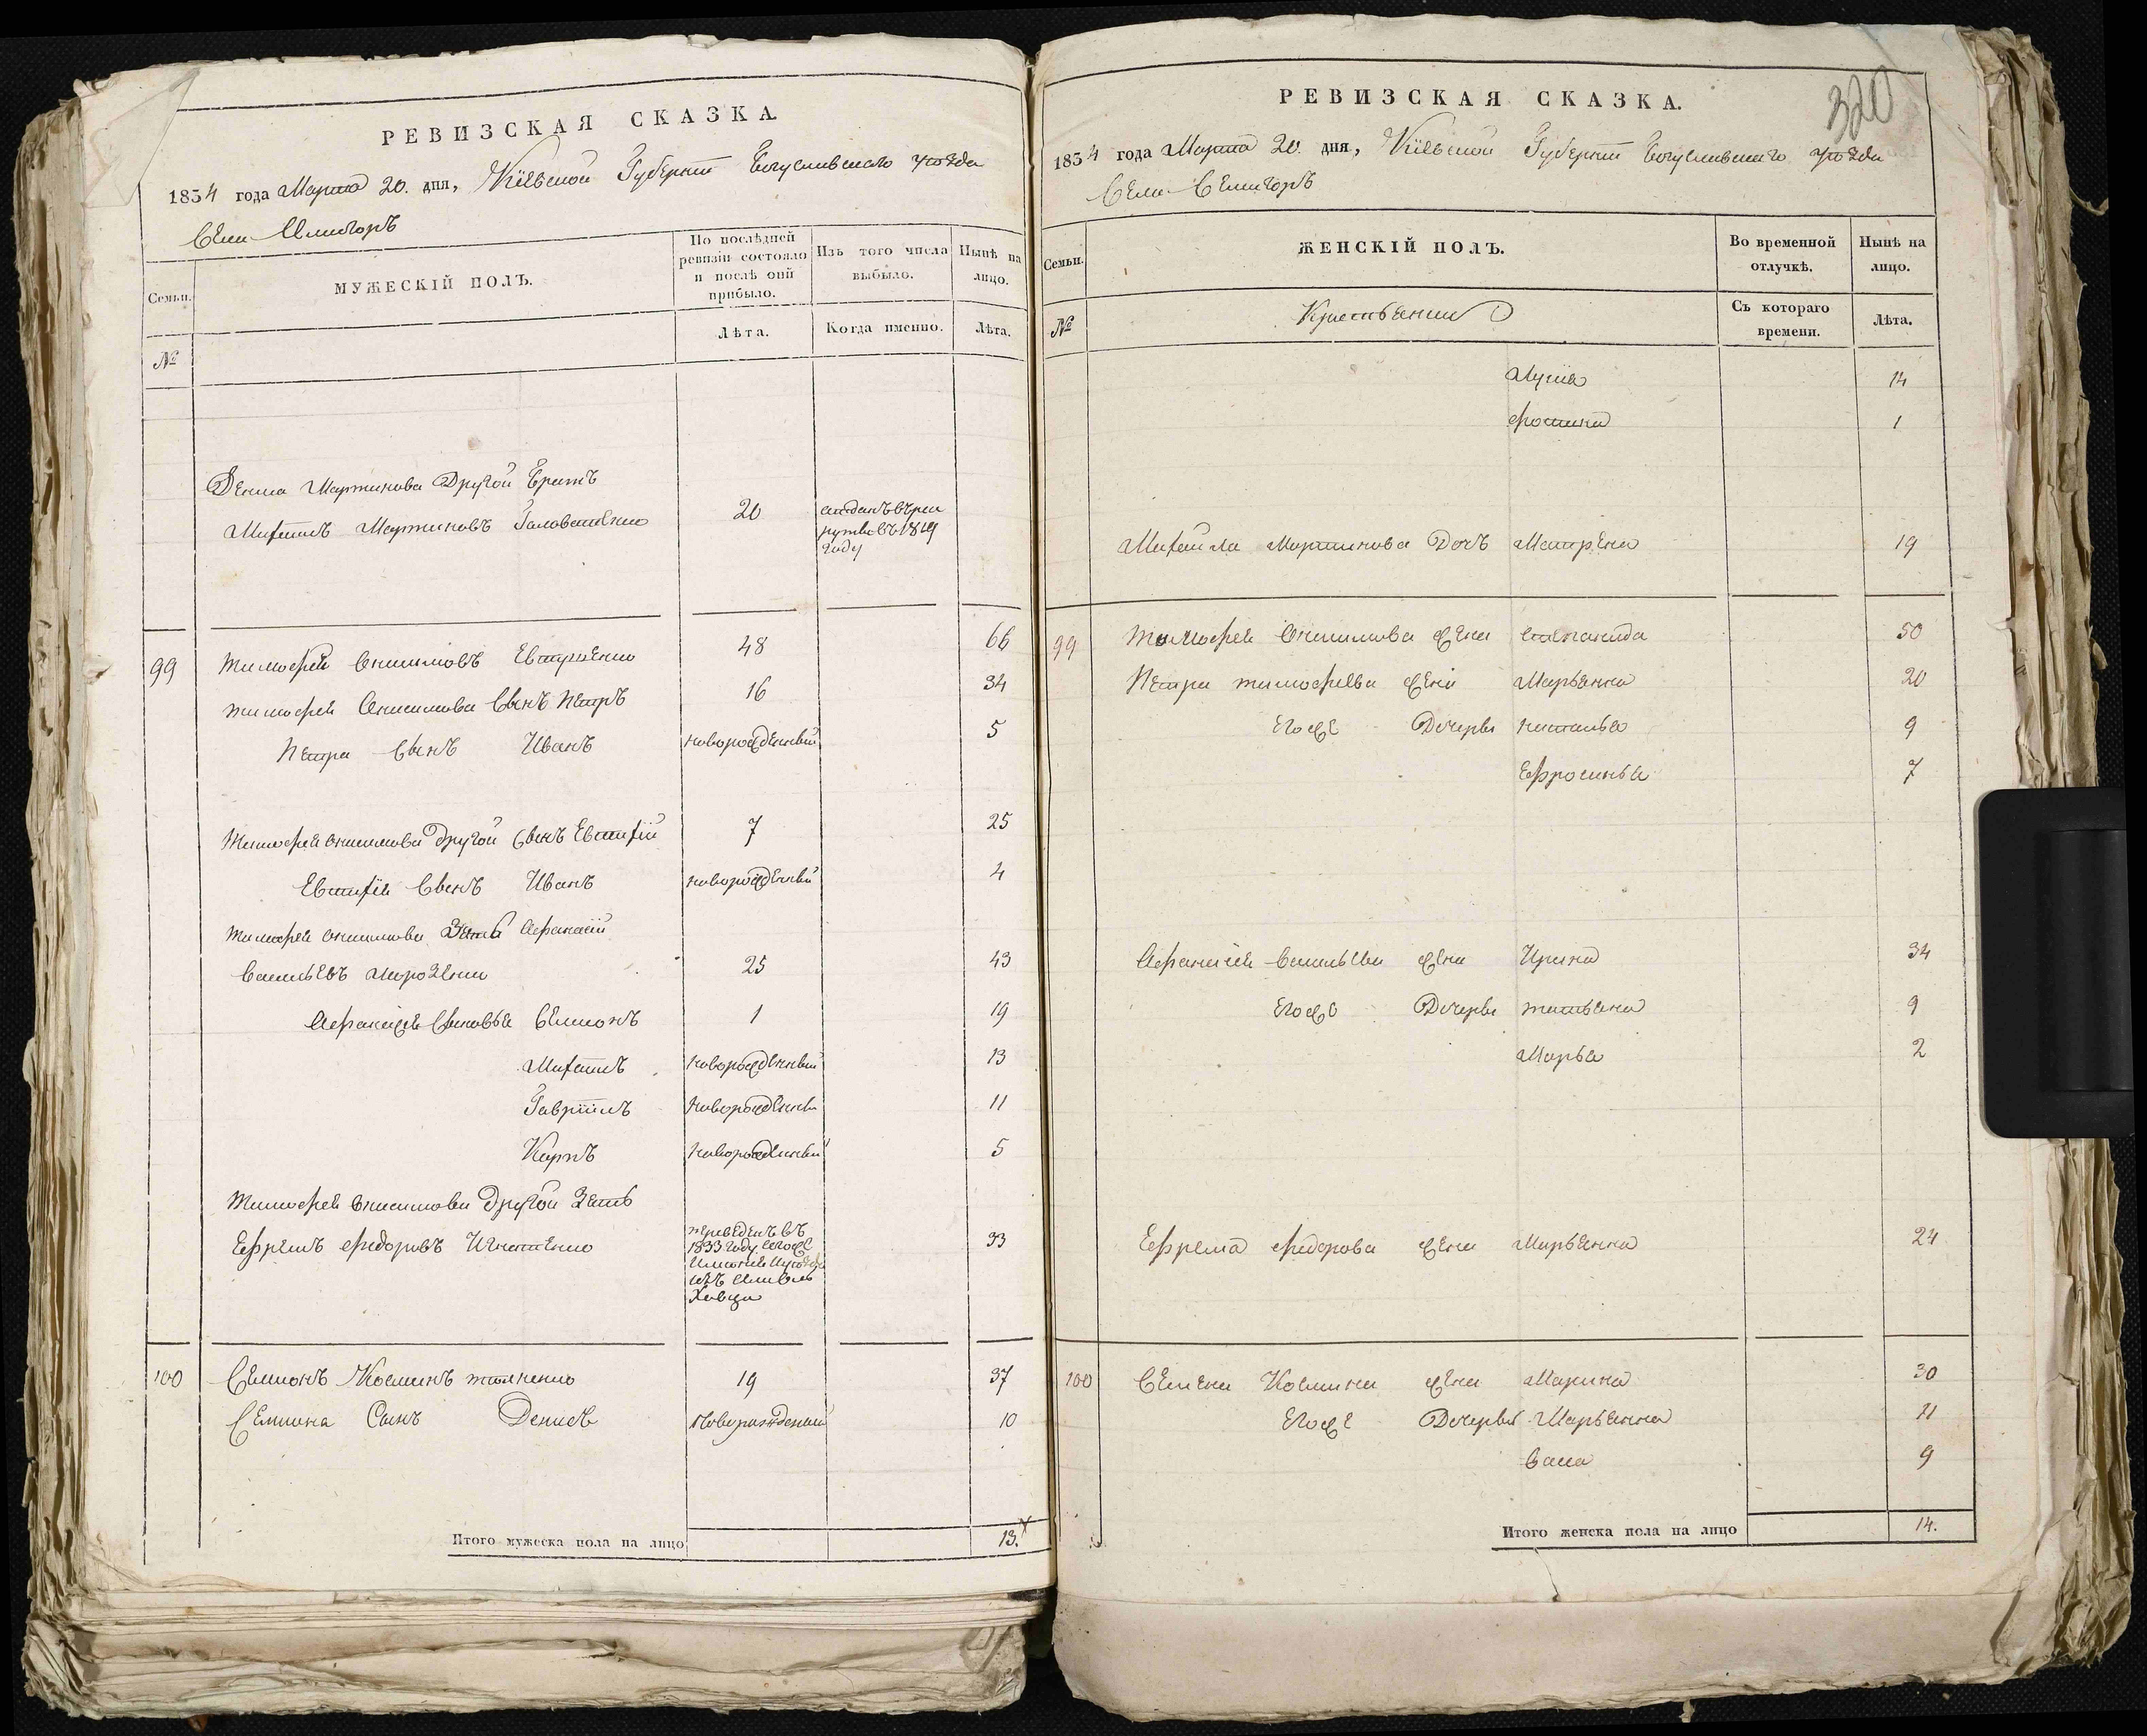 РЕВИЗСКАЯ СКАЗКА.
1834 года Марта 20. дня, Кіевской Губерніи Богуславскаго уѣзда
Села Семигоръ
Семьи.
МУЖЕСКІЙ ПОЛЪ.
По послѣдней ревизіи состояло и послѣ оной прибыло.
Изъ того числа выбыло.
Нынѣ на лицо.
№
Лѣта.
Когда именно.
Лѣта.
Дениса Мартинова Другой Братъ
Михаилъ Мартиновъ 20 отданъ въ рек
руты въ 1819
году
99 Тимофей Онисимовъ 48 66
Тимофея Онисимова Сынъ Петръ 16 34
Петра Сынъ Иванъ новорожденный 5
Тимофея Онисимова Другой Сынъ Евстафій 7 25
Евстафія Сынъ Иванъ новорожденный 4
Тимофея Онисимова Зять Афанасій
Васильевъ Морозенко 25 43
Афанасія Сыновья Семионъ 1 19
Михаилъ новорожденный 13
Гавріилъ новорожденный 11
Карпъ новорожденный 5
Тимофея Онисимова Другой Зять
Ефремъ Федоровъ Игнатенко переведенъ въ 33
1833 году
100 Семионъ Косминъ 19 37
Семиона Сынъ Денисъ Новорожденый 10
Итого мужеска пола на лицо 13.
320
РЕВИЗСКАЯ СКАЗКА.
1834 года Марта 20. дня, Кіевской Губерніи Богуславскаго уѣзда
Села Семигоръ
Семьи.
ЖЕНСКІЙ ПОЛЪ.
Во временной отлучкѣ.
Нынѣ на лицо.
№
Съ котораго времени.
Лѣта.
14
1
Михайла Мартинова Дочъ Матрена 19
99 Тимофея Онисимова жена Степанида 50
Петра Тимофеева жена Марьянна 20
Егоже Дочеры Наталья 9
Ефросинья 7
Афанасія Васильева жена Ирина 34
Егоже Дочеры Татьяна 9
Марья 2
Ефрема Федорова жена Марьянна 24
100 Семена Космина жена Марина 30
Егоже Дочеры Марьянна 11
Васса 9
Итого женска пола на лицо 14.